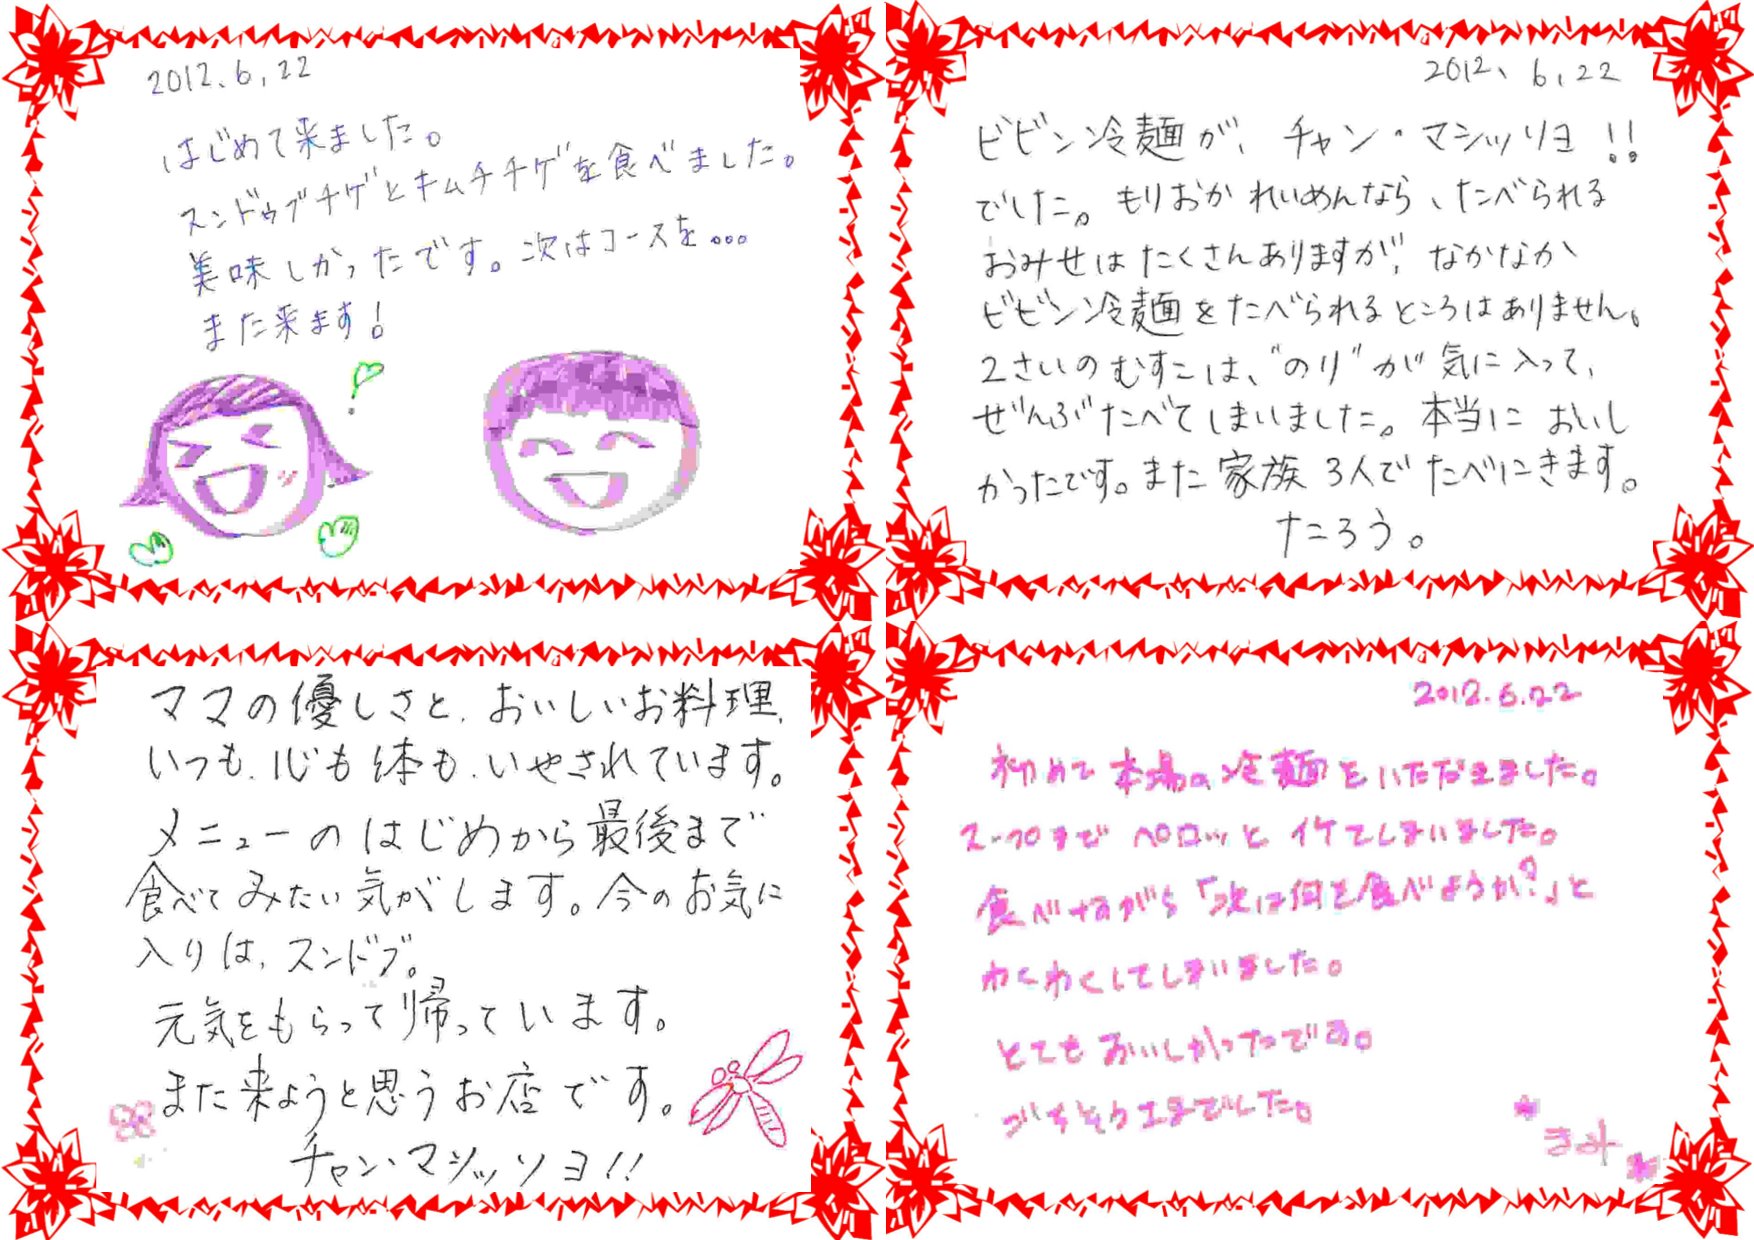 2012.6.22
はじめて来ました。
スンドゥブチゲとキムチチゲを食べました。
美味しかったです。次はコースを...
また来ます!
2012.6.22
ビビン冷麺が、チャン・マシッソヨ!!
でした。もりおかれいめんなら、たべられる
おみせはたくさんありますが、なかなか
ビビン冷麺をたべられるところはありません。
2さいのむすこは、“のり”が気に入って、
ぜんぶたべてしまいました。本当においし
かったです。また家族3人でたべにきます。
たろう。
ママの優しさと、おいしいお料理、
いつも、心も体も、いやされています。
メニューのはじめから最後まで
食べてみたい気がします。今のお気に
入りは、スンドブ。
元気をもらって帰っています。
また来ようと思うお店です。
チャン・マシッソヨ!!
2012.6.22
初めて本場の冷麺をいただきました。
スープまでペロッとイケてしまいました。
食べながら「次は何を食べようか?」と
わくわくしてしまいました。
とてもおいしかったです。
ごちそうさまでした。
きみ